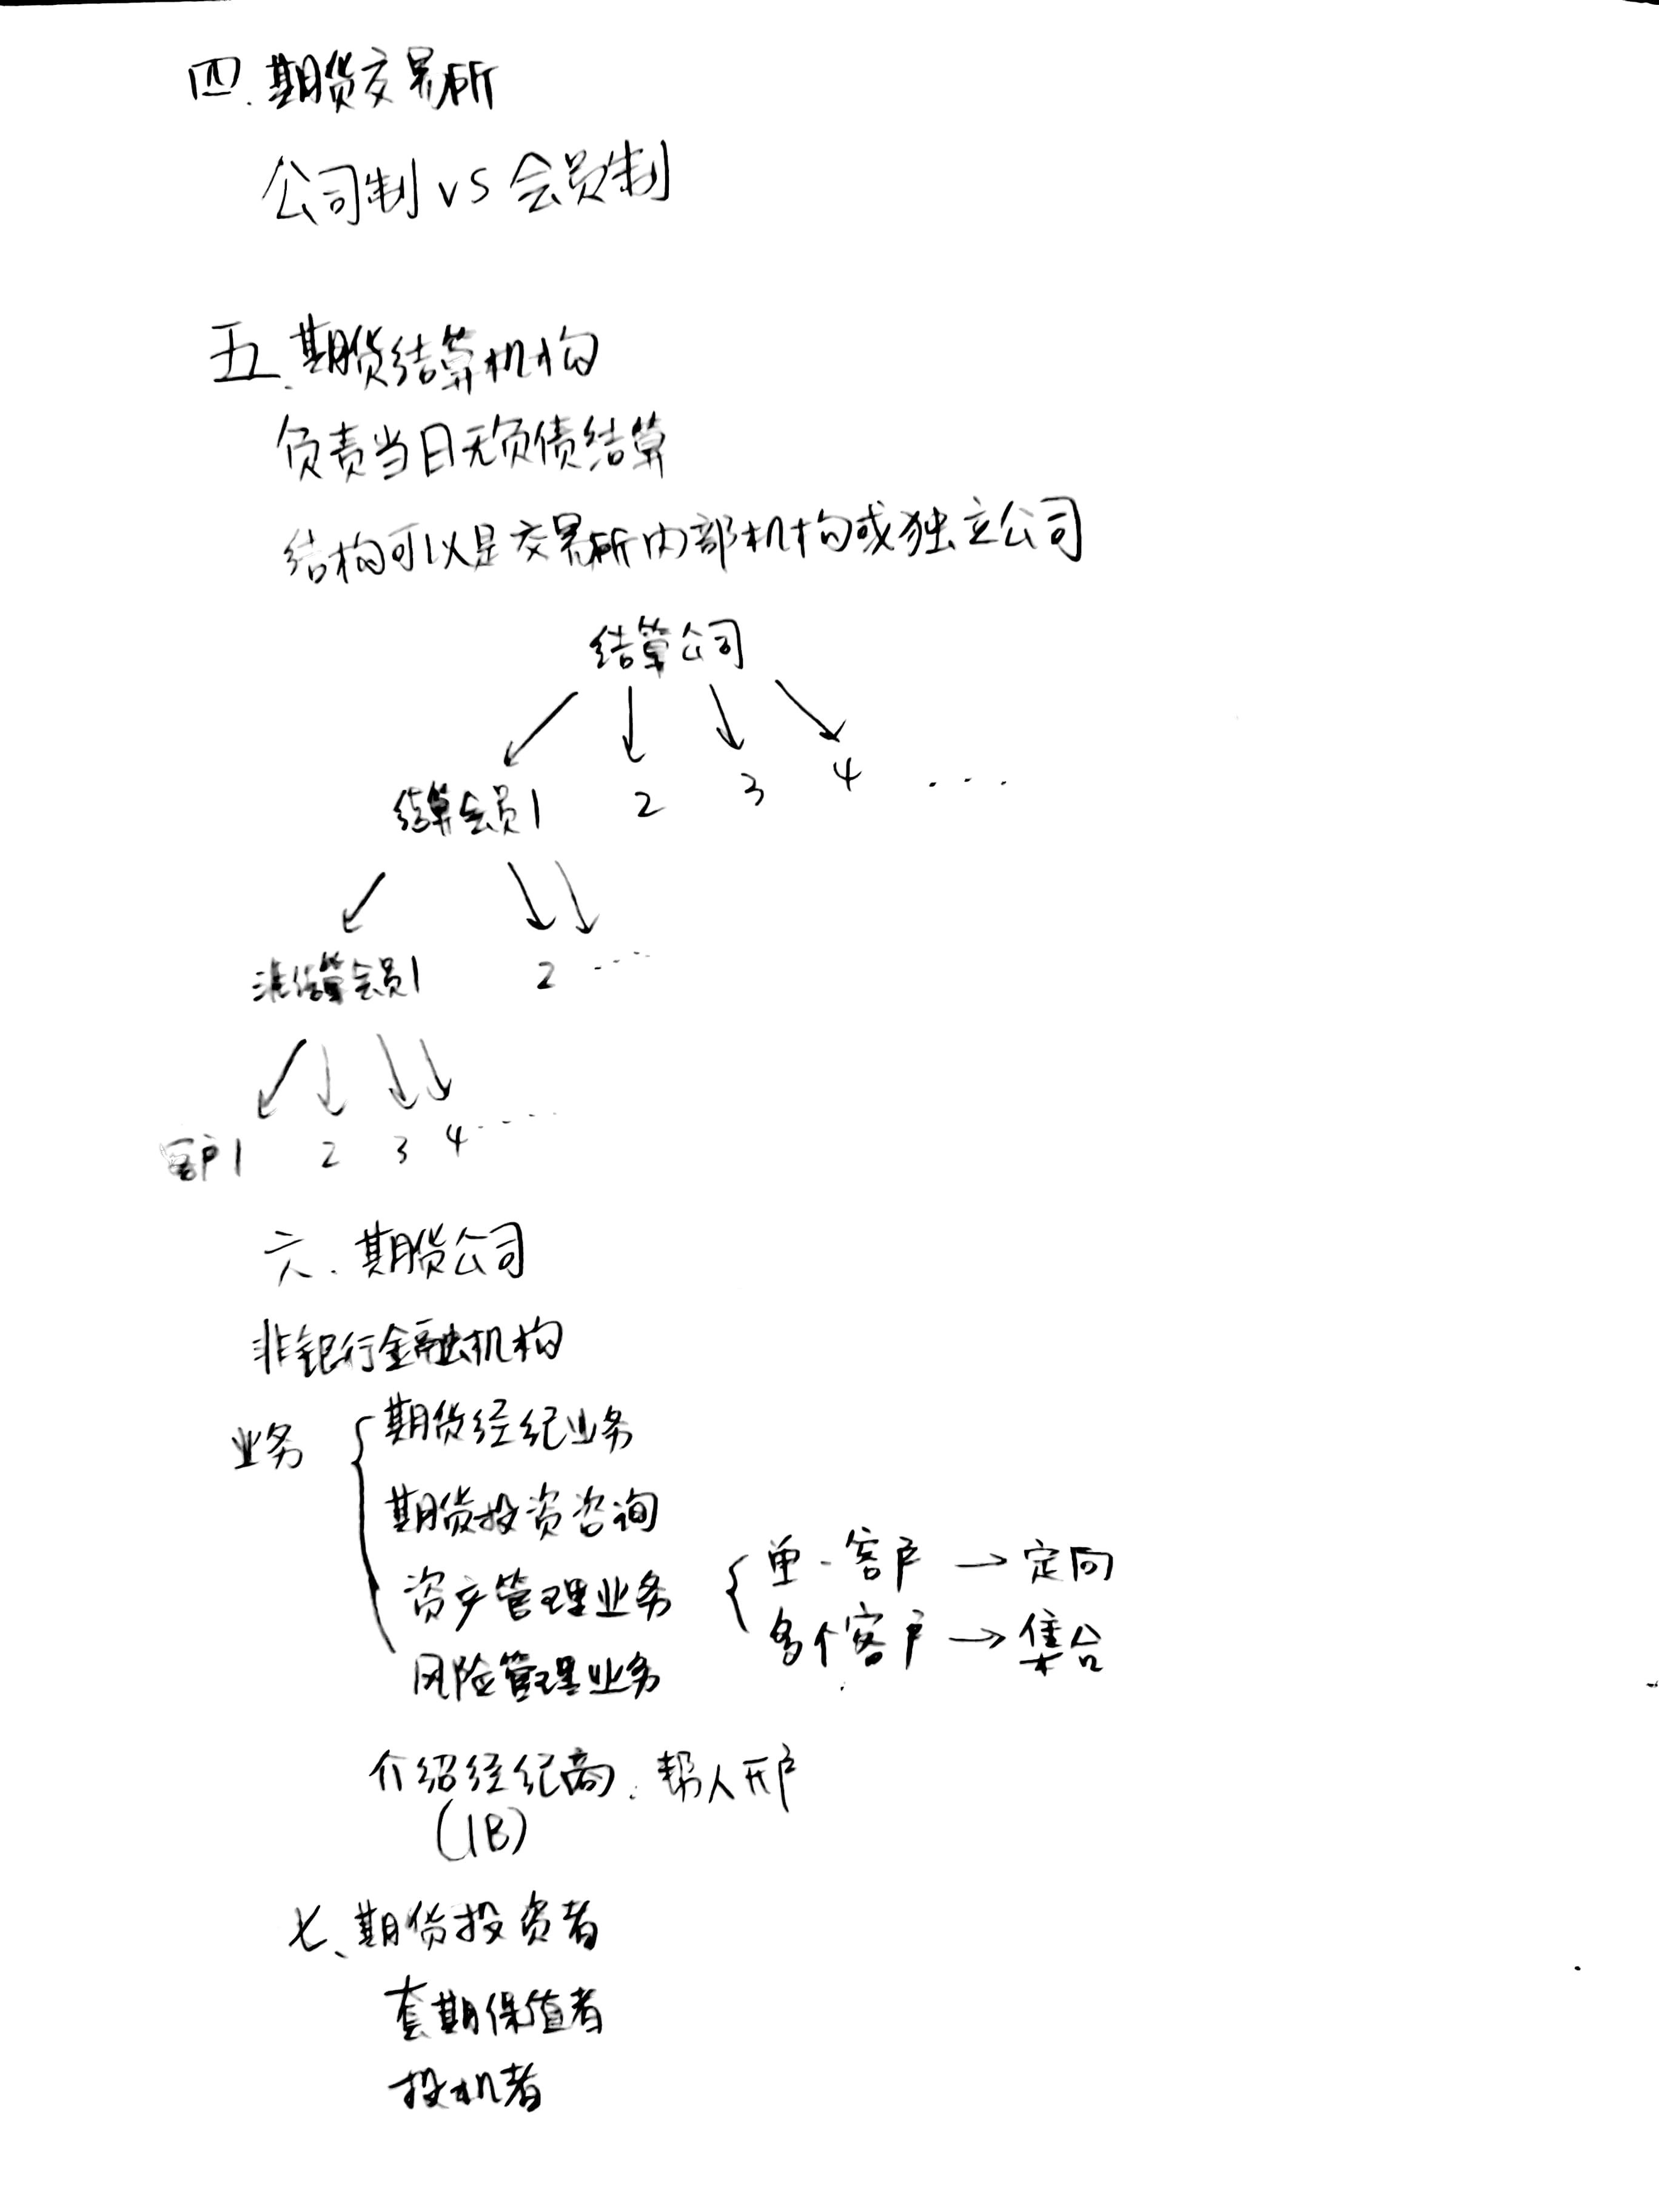 四.期货交易所
公司制 vs 会员制
五.期货结算机构
负责当日无负债结算
结构可以是交易所内部机构或独立公司
结算公司
↙ ↓ ↘ ↘
结算会员1 2 3 4 ....
↙ ↘ ↘
非结算会员1 2 ....
↙ ↓ ↘ ↘
客户1 2 3 4 ....
六.期货公司
非银行金融机构
业务 { 期货经纪业务
期货投资咨询
资产管理业务 { 单一客户 → 定向
多个客户 → 集合
风险管理业务
介绍经纪商.帮人开户
(IB)
七、期货投资者
套期保值者
投机者